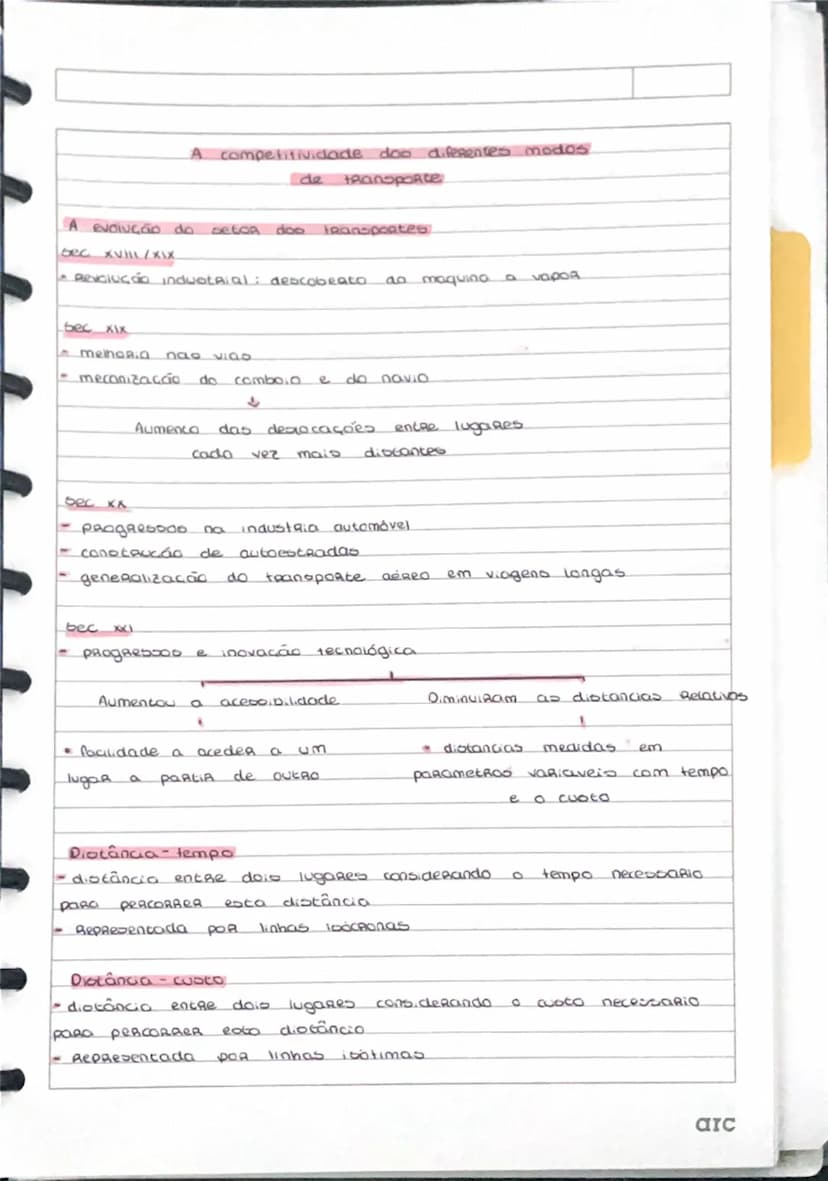 A competitividade dos diferentes modos
de transporte
A evolução do setor dos transportes
sec XVIII/XIX
• Revolução industrial: descoberta da maquina a vapor
sec XIX
- melhoria nas vias
- mecanização do comboio e do navio
↓
Aumento das deslocações entre lugares
cada vez mais distantes
sec XX
- progressos na industria automóvel
- construção de autoestradas
- generalização do transporte aéreo em viagens longas
sec XXI
- progressos e inovação tecnológica
Aumentou a acessibilidade Diminuiram as distancias relativas
• facilidade a aceder a um
lugar a partir de outro
• distancias medidas em
parametros variaveis com tempo
e o custo
Distância-tempo
- distância entre dois lugares considerando o tempo necessario
para percorrer esta distância
- Representada por linhas isócronas
Distância-custo
- distância entre dois lugares considerando o custo necessario
para percorrer esta distância
- Representada por linhas isótimas
arc